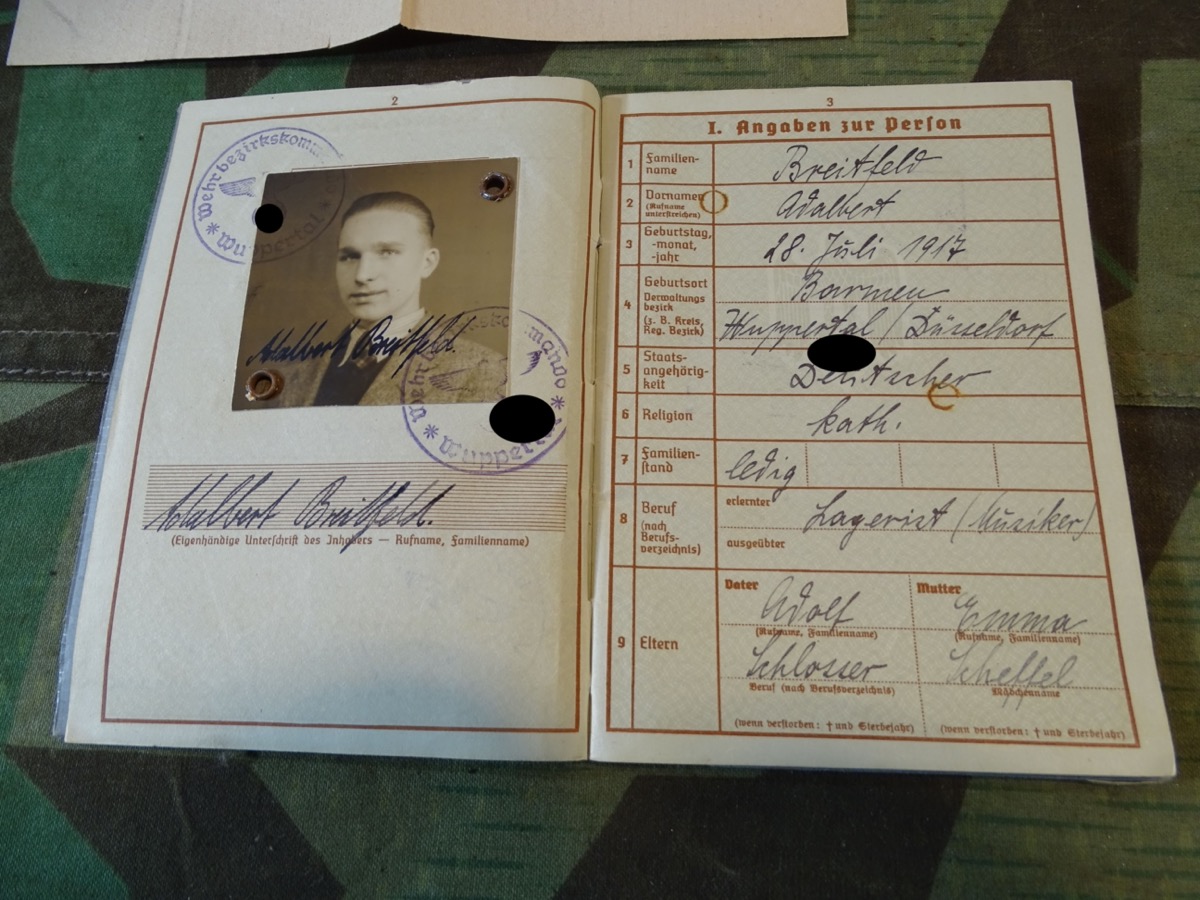 2
Wehrbezirkskomm
* Wuppertal *
Adalbert Breitfeld.
Wehr
mando
* Wupperta *
Adalbert Breitfeld.
(Eigenhändige Unterschrift des Inhabers — Rufname, Familienname)
3
I. Angaben zur Person
1 Familien-
name
Breitfeld
2 Vornamen
(Rufname
unterstreichen)
Adalbert
3 Geburtstag,
-monat,
-jahr
28. Juli 1917
4 Geburtsort
Verwaltungs
bezirk
(z. B. Kreis,
Reg. Bezirk)
Barmen
Wuppertal / Düsseldorf
5 Staats-
angehörig-
keit
Deutscher
6 Religion
kath.
7 Familien-
stand
ledig
8 Beruf
(nach
Berufs-
verzeichnis)
erlernter
Lagerist (Musiker)
ausgeübter
9 Eltern
Vater
Adolf
(Rufname, Familienname)
Schlosser
Beruf (nach Berufsverzeichnis)
(wenn verstorben: † und Sterbejahr)
Mutter
Emma
(Rufname, Familienname)
Scheffel
Mädchenname
(wenn verstorben: † und Sterbejahr)